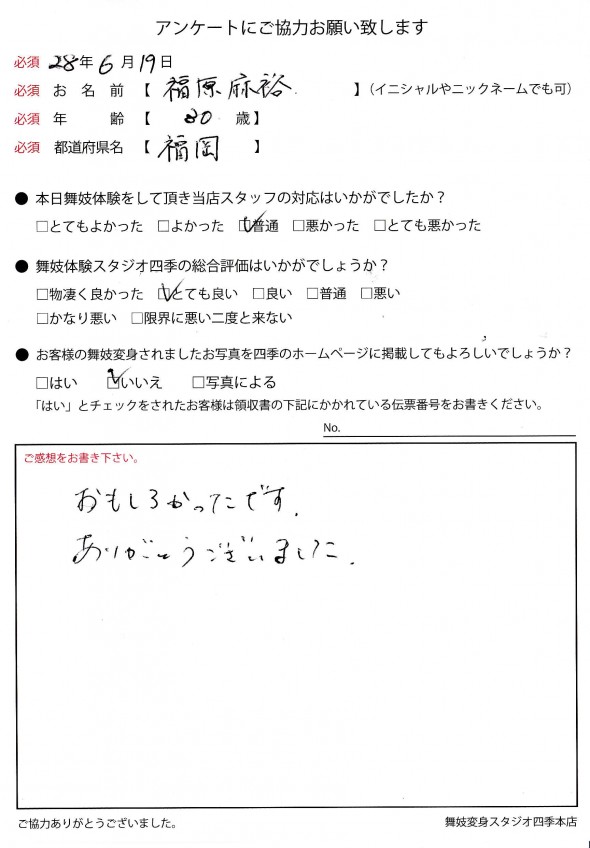 アンケートにご協力お願い致します
必須 28年6月19日
必須 お名前【 福原麻裕 】（イニシャルやニックネームでも可）
必須 年齢【 30 歳】
必須 都道府県名【 福岡 】
● 本日舞妓体験をして頂き当店スタッフの対応はいかがでしたか？
□とてもよかった □よかった ☑普通 □悪かった □とても悪かった
● 舞妓体験スタジオ四季の総合評価はいかがでしょうか？
□物凄く良かった ☑とても良い □良い □普通 □悪い
□かなり悪い □限界に悪い二度と来ない
● お客様の舞妓変身されましたお写真を四季のホームページに掲載してもよろしいでしょうか？
□はい ☑いいえ □写真による
「はい」とチェックをされたお客様は領収書の下記にかかれている伝票番号をお書きください。
No.
ご感想をお書き下さい。
おもしろかったです.
ありがとうございました.
ご協力ありがとうございました。 舞妓変身スタジオ四季本店